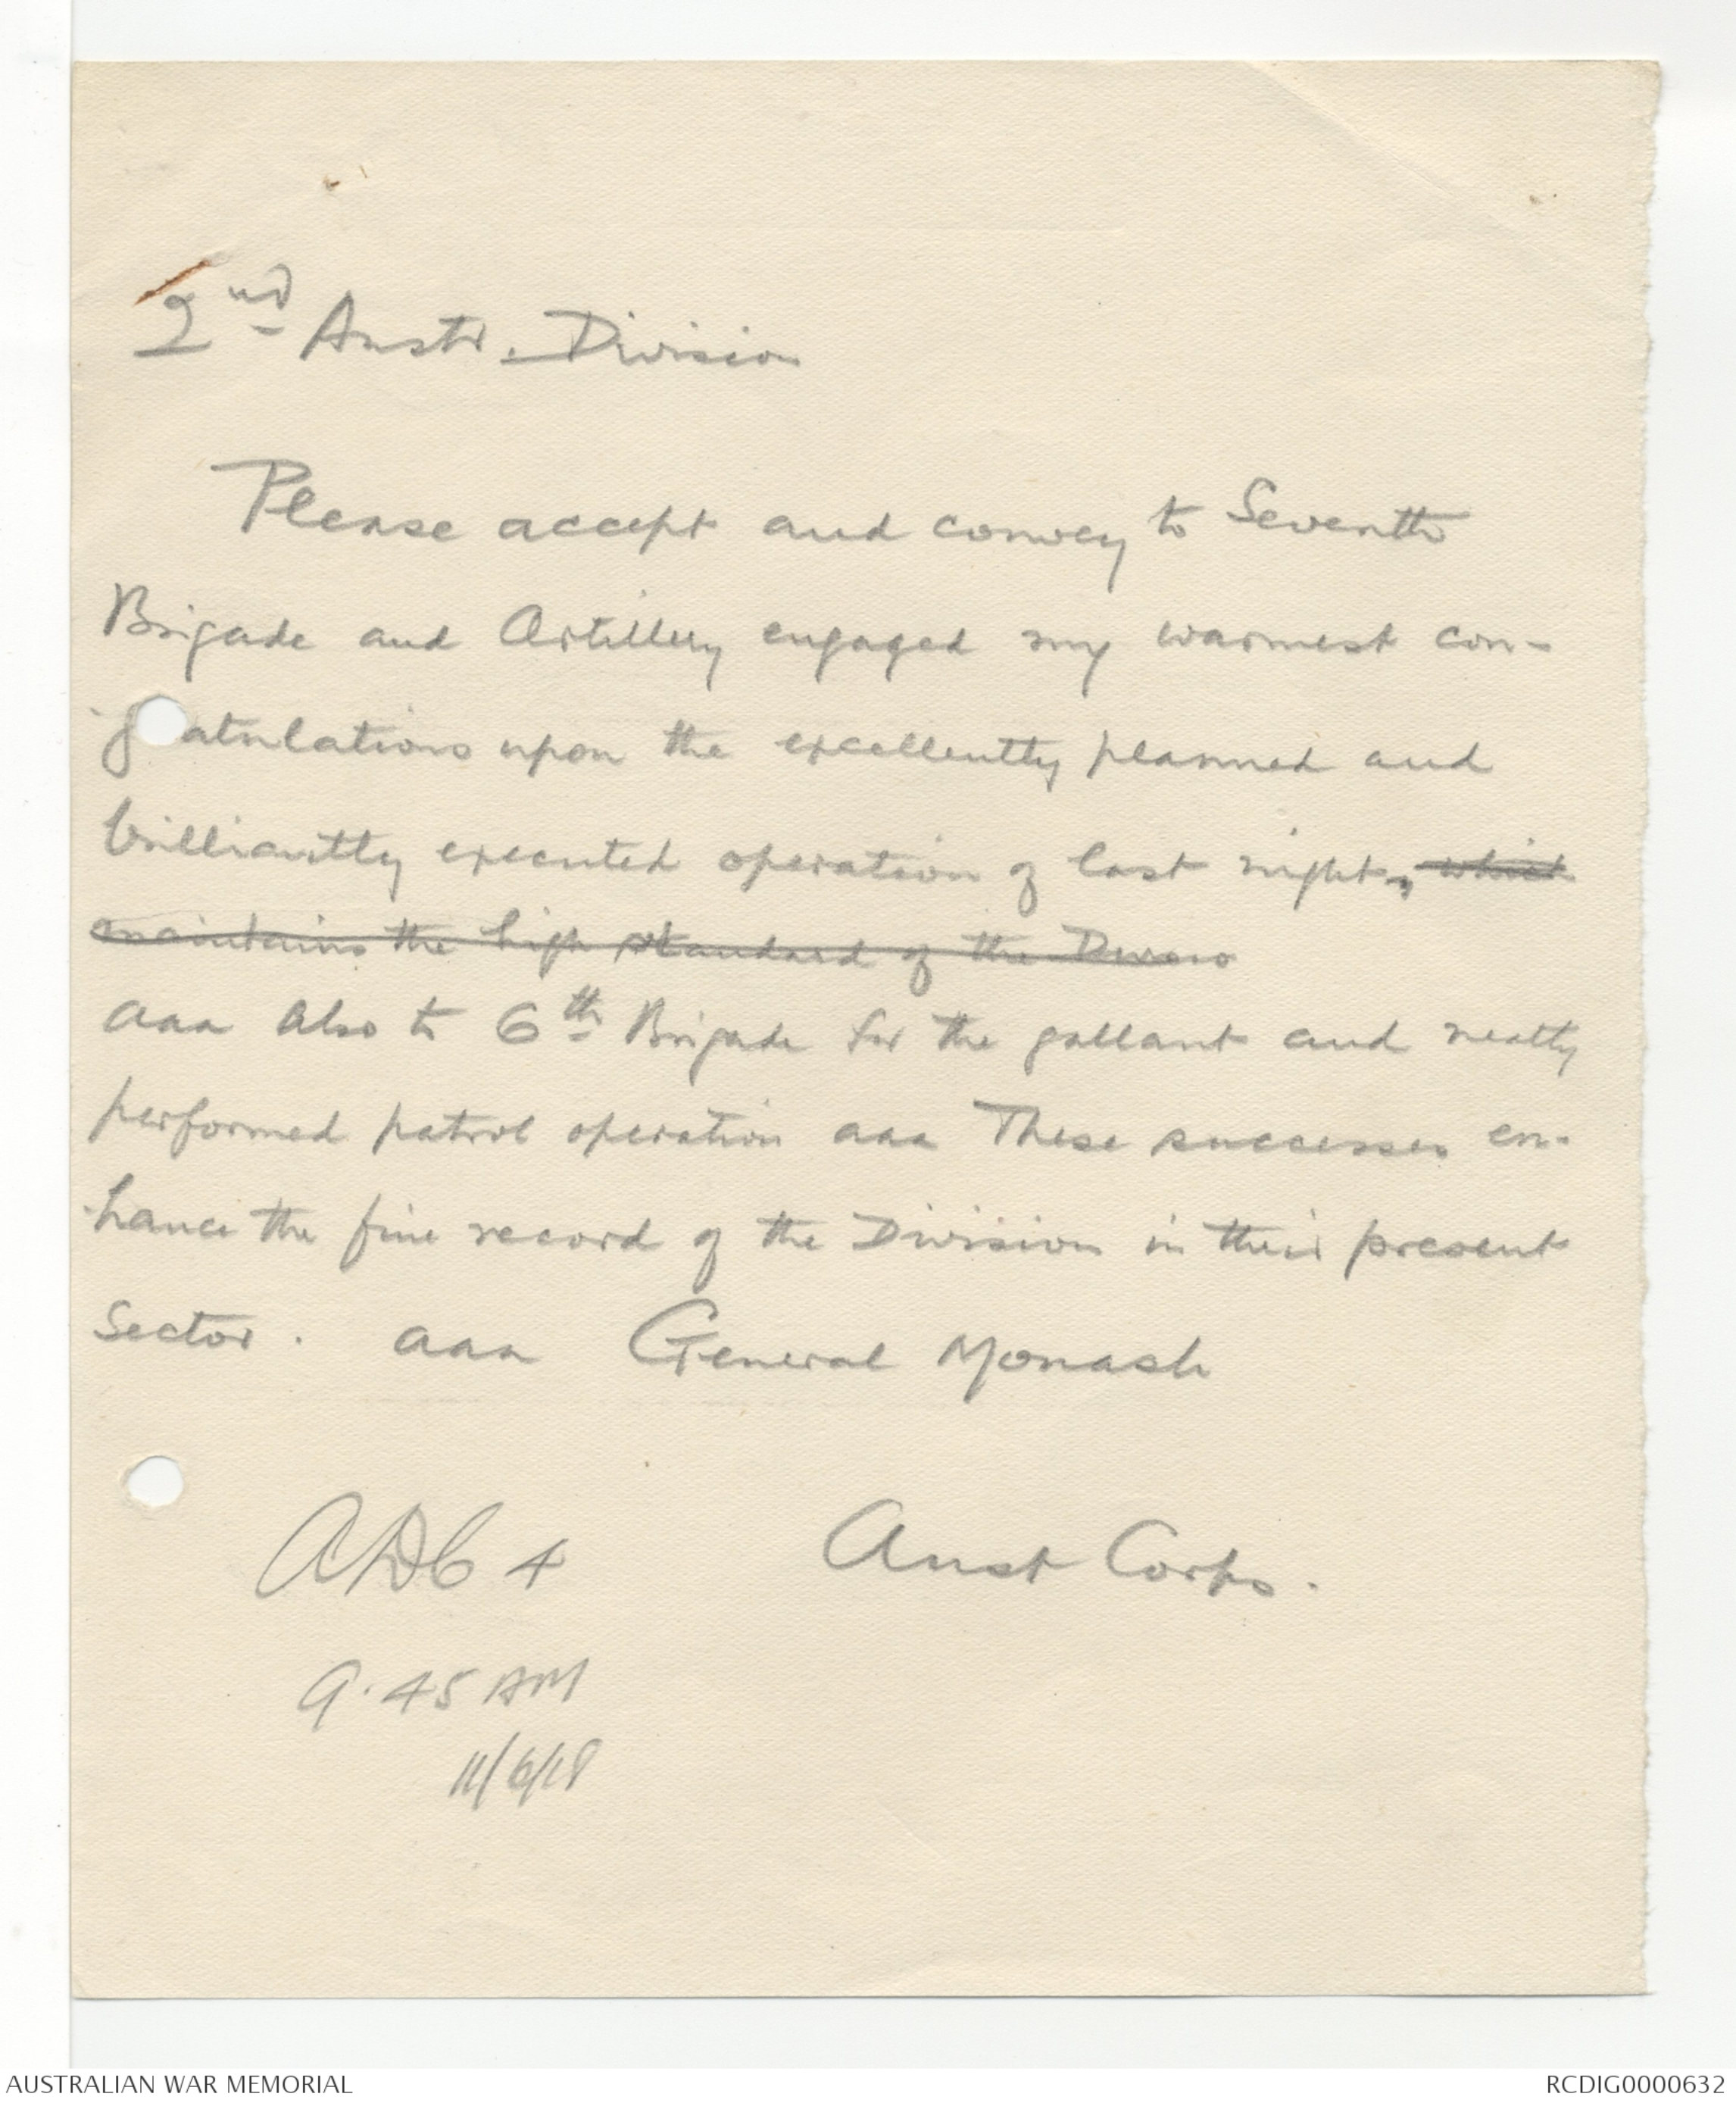 2nd Austr. Division
Please accept and convey to Seventh
Brigade and Artillery engaged my warmest con-
g atulations upon the excellently planned and
brilliantly executed operation of last night, which
maintains the high standard of the
aaa Also to 6th Brigade for the gallant and neatly
performed patrol operation aaa These successes en-
hance the fine record of the Division in their present
Sector. aaa General Monash
ADC 4 Aust Corps.
9.45 AM
11/6/18
AUSTRALIAN WAR MEMORIAL RCDIG0000632